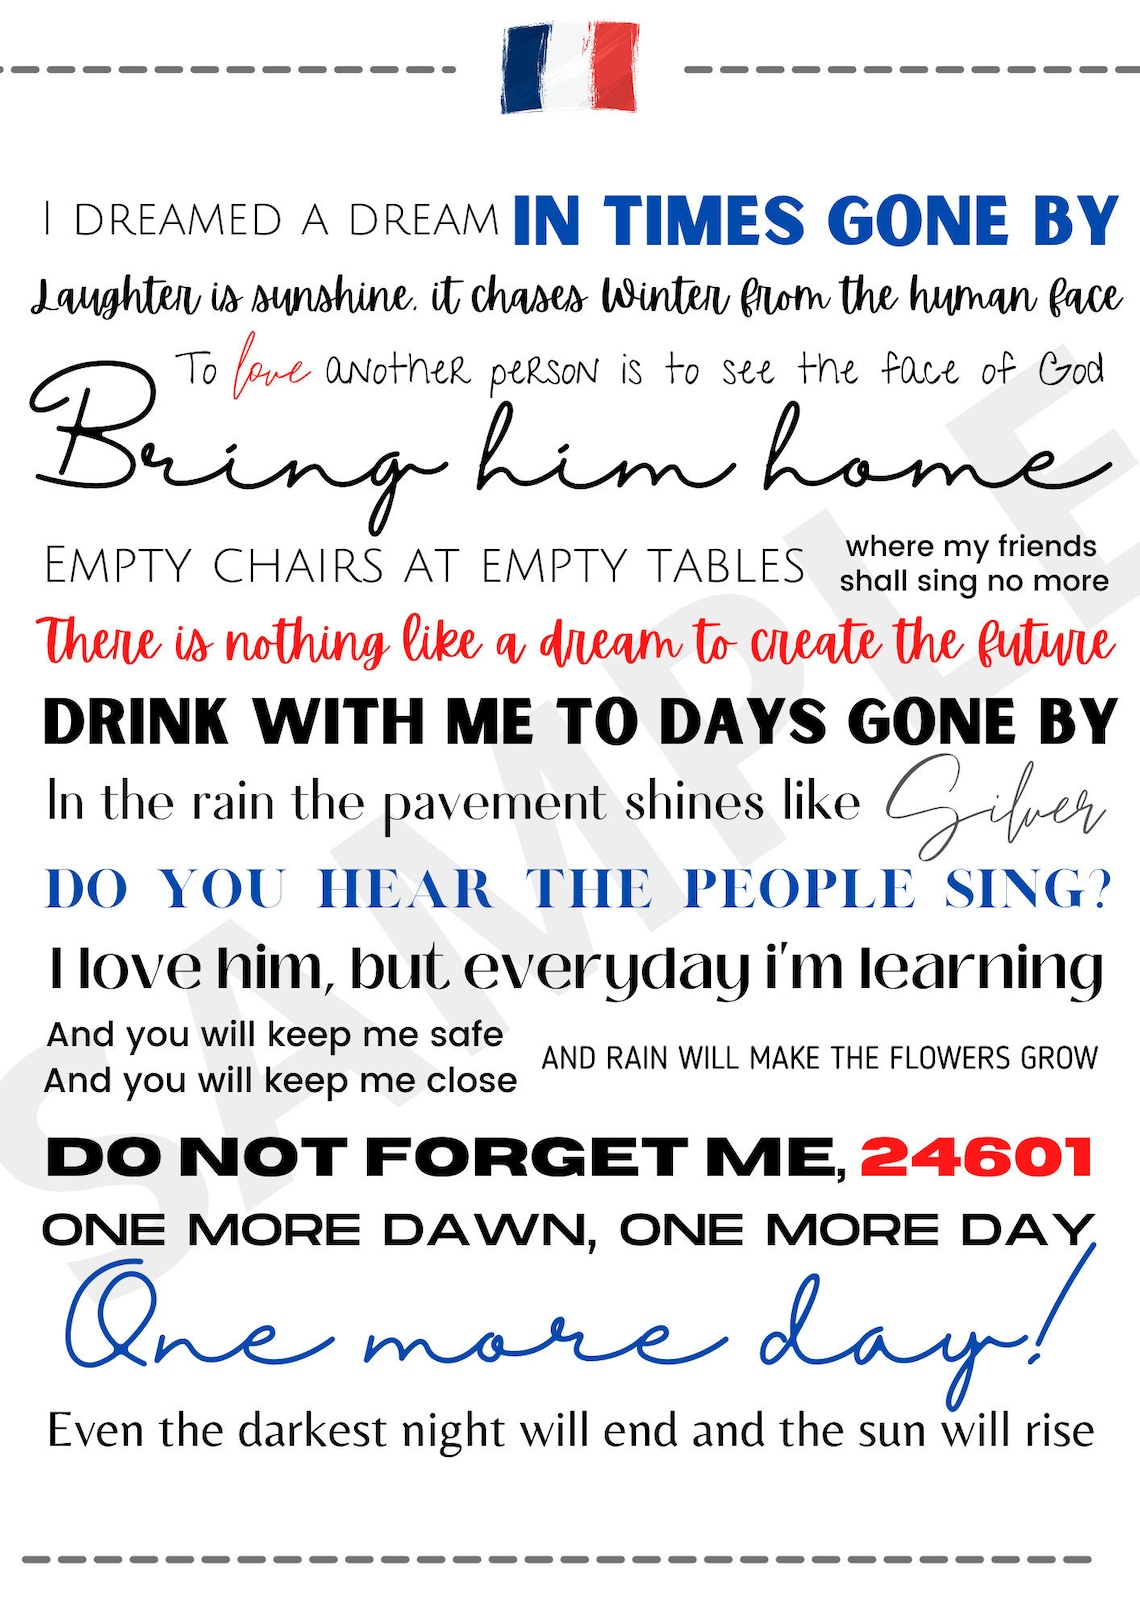 I DREAMED A DREAM IN TIMES GONE BY
Laughter is sunshine, it chases Winter from the human face
To love another person is to see the face of God
Bring him home
EMPTY CHAIRS AT EMPTY TABLES
where my friends
shall sing no more
There is nothing like a dream to create the future
DRINK WITH ME TO DAYS GONE BY
In the rain the pavement shines like Silver
DO YOU HEAR THE PEOPLE SING?
I love him, but everyday i'm learning
And you will keep me safe
And you will keep me close
AND RAIN WILL MAKE THE FLOWERS GROW
DO NOT FORGET ME, 24601
ONE MORE DAWN, ONE MORE DAY
One more day!
Even the darkest night will end and the sun will rise
SAMPLE